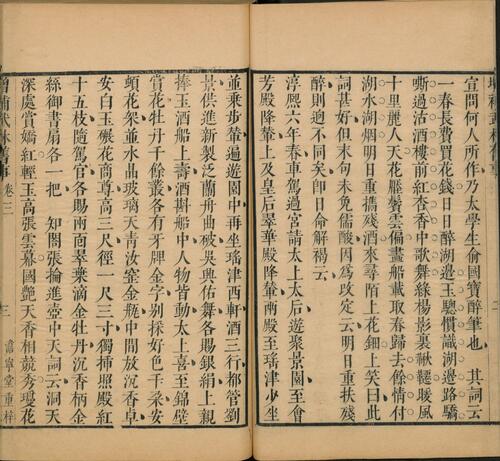 宣問何人所作乃太學生俞國寶醉筆也其詞云
一春長費買花錢日日醉湖邊玉驄慣識湖邊路驕
嘶過沽酒樓前紅杏香中歌舞綠楊影裏鞦韆暖風
十里麗人天花壓鬢雲偏畫船載取春歸去餘情付
湖水湖烟明日重攜殘酒來尋陌上花鈿上笑曰此
詞甚好但末句未免儒酸因為攺定云明日重扶殘
醉則逈不同矣卽日命解褐云
淳熈六年春車駕過宮請太上太后遊聚景園至會
芳殿降輦上及皇后翠華殿降輦南殿至瑤津少坐
並乘步輦遍遊園中再坐瑤津西軒酒三行都管劉
景供進新製泛蘭舟曲破吳興佑舞各賜銀絹上親
捧玉酒船上壽酒斟船中人物皆動太上喜至錦壁
賞花牡丹千餘叢各有牙牌金字别採好色千朵安
頓花架並水晶玻璃天青汝窑金瓶中間放沉香卓
安白玉碾花商尊高三尺徑一尺三寸獨揷照殿紅
十五枝隨駕官各賜兩面翠葉滴金牡丹沉香柄金
絲御書扇各一把知閤張掄進壺中天詞云洞天
深處賞嬌紅輕玉高張雲幕國艷天香相競秀瓊花
增補武林舊事 卷三 三